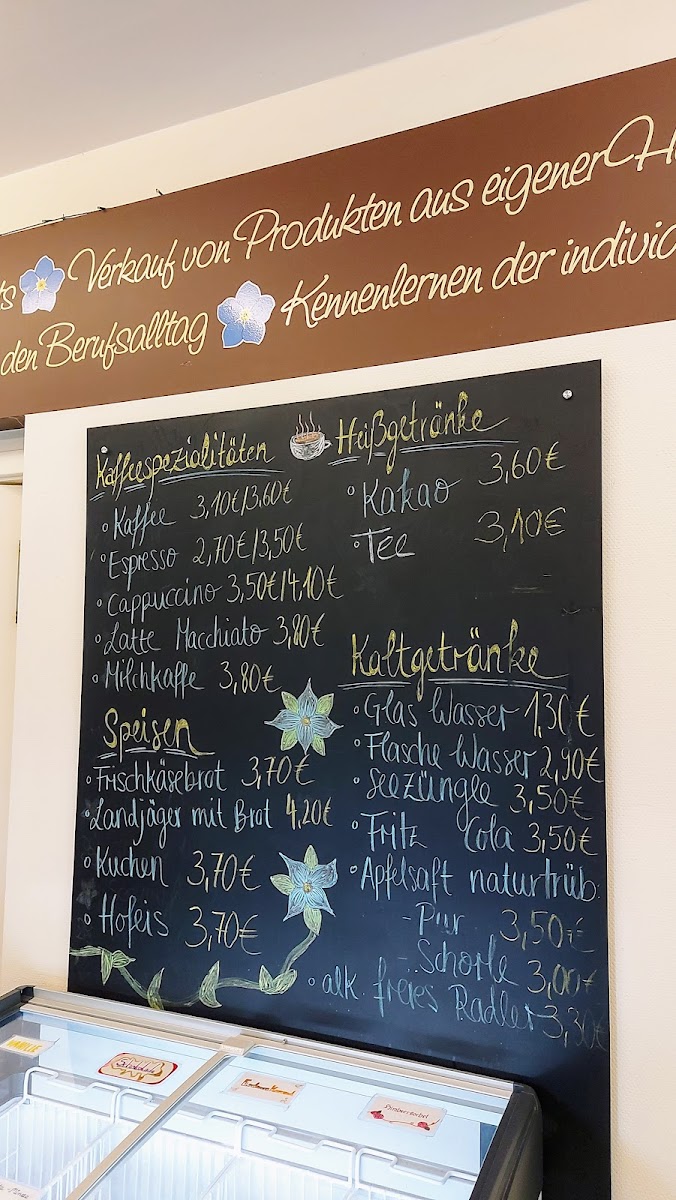 Verkauf von Produkten aus eigener
den Berufsalltag Kennenlernen der
Kaffeespezialitäten
° Kaffee 3,10€/3,60€
° Espresso 2,70€/3,50€
° Cappuccino 3,50€/4,10€
° Latte Macchiato 3,80€
° Milchkaffe 3,80€
Speisen
° Frischkäsebrot 3,70€
° Landjäger mit Brot 4,20€
° Kuchen 3,70€
° Hofeis 3,70€
Heißgetränke
° Kakao 3,60€
° Tee 3,10€
Kaltgetränke
° Glas Wasser 1,30€
° Flasche Wasser 2,90€
° Seezüngle 3,50€
° Fritz Cola 3,50€
° Apfelsaft naturtrüb:
- Pur 3,50€
- Schorle 3,00€
° alk. freies Radler 3,30€
Schokolade